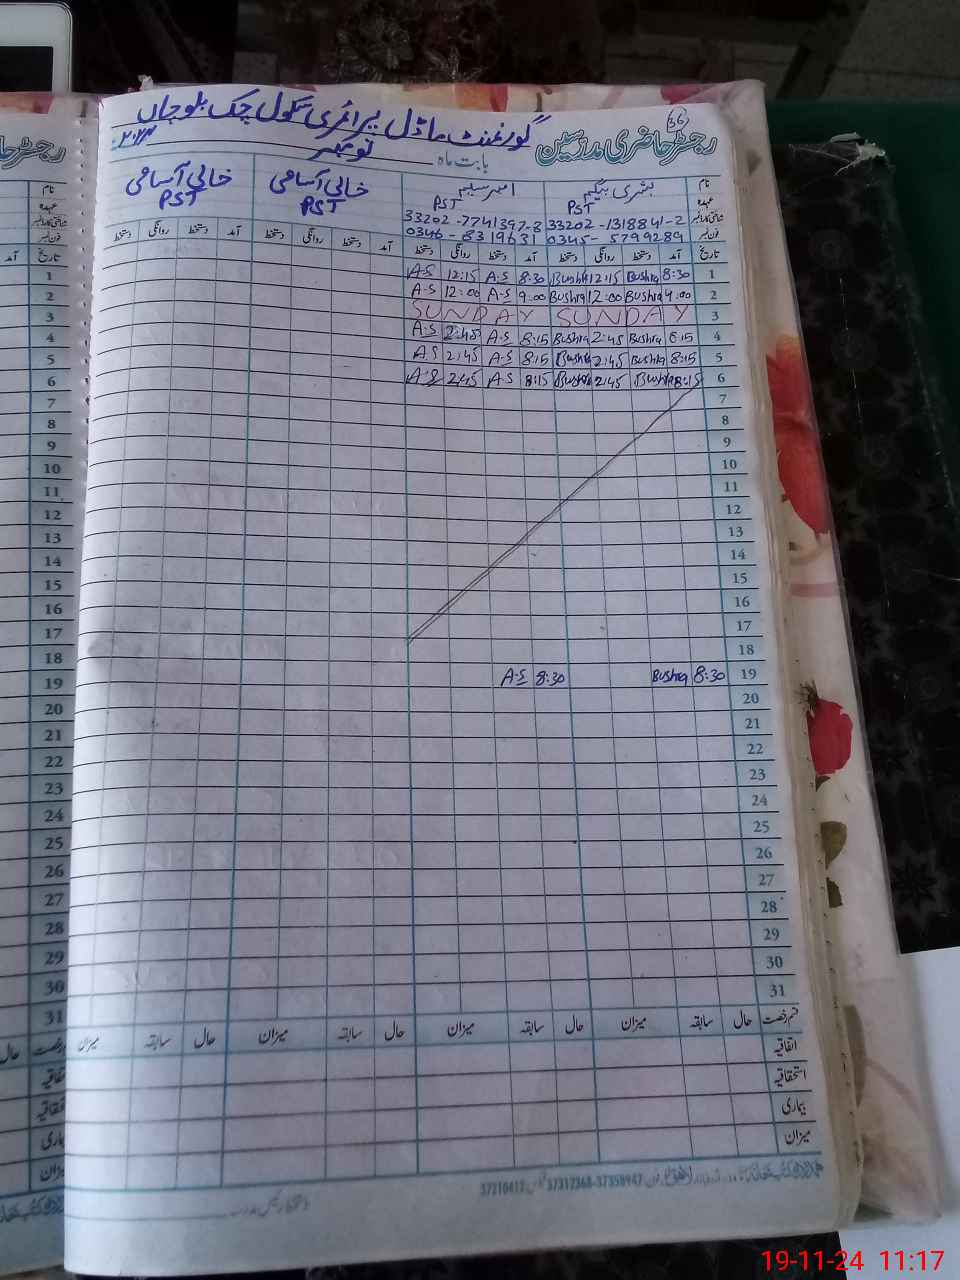 گورنمنٹ ماڈل پرائمری سکول چک بلوچاں
36
رجسٹر حاضری مدرسین
بابت ماہ نومبر ۲۰۲۴
نام بشریٰ بیگم امبر سلیم خالی آسامی خالی آسامی
عہدہ PST PST PST PST
شناختی کارڈ نمبر 33202-1318841-2 33202-7741397-8
فون نمبر 0345-5799289 0346-8319631
تاریخ آمد دستخط روانگی دستخط آمد دستخط روانگی دستخط آمد دستخط روانگی دستخط آمد دستخط روانگی دستخط
1 8:30 Bushra 12:15 Bushra 8:30 A-S 12:15 A-S
2 9:00 Bushra 12:00 Bushra 9:00 A-S 12:00 A-S
3 SUNDAY SUNDAY
4 8:15 Bushra 2:45 Bushra 8:15 A-S 2:45 A-S
5 8:15 Bushra 2:45 Bushra 8:15 A-S 2:45 A-S
6 8:15 Bushra 2:45 Bushra 8:15 A-S 2:45 A-S
7
8
9
10
11
12
13
14
15
16
17
18
19 8:30 Bushra 8:30 A-S
20
21
22
23
24
25
26
27
28
29
30
31
قسم رخصت حال سابقہ میزان حال سابقہ میزان حال سابقہ میزان حال سابقہ میزان
اتفاقیہ
استحقاقیہ
بیماری
میزان
37310412 37312368-37358947
دستخط رئیس مدرسہ
19-11-24 11:17